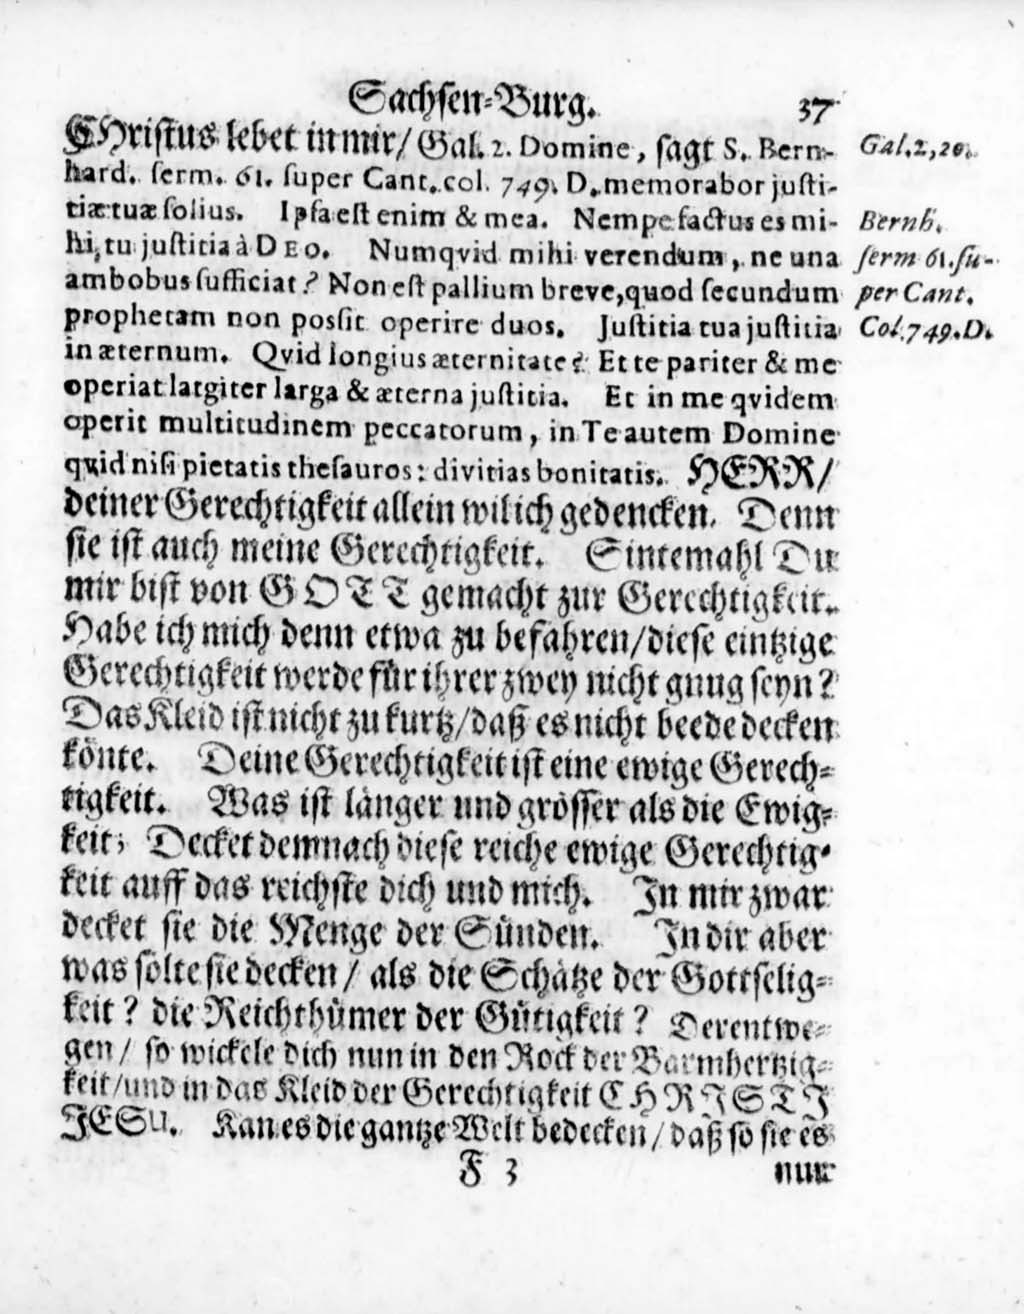 Sachsen-Burg. 37
CHristus lebet in mir/ Gal. 2. Domine, sagt S. Bern-
Gal. 2, 20.
hard. serm. 61. super Cant. col. 749. D. memorabor justi-
tiæ tuæ solius. Ipsa est enim & mea. Nempe factus es mi-
Bernh.
hi, tu justitia à DEO. Numqvid mihi verendum, ne una
serm 61. su-
ambobus sufficiat? Non est pallium breve, quod secundum
per Cant.
prophetam non possit operire duos. Justitia tua justitia
Col. 749. D.
in æternum. Qvid longius æternitate? Et te pariter & me
operiat latgiter larga & æterna justitia. Et in me qvidem
operit multitudinem peccatorum, in Te autem Domine
qvid nisi pietatis thesauros: divitias bonitatis. HERR/
deiner Gerechtigkeit allein wil ich gedencken. Denn
sie ist auch meine Gerechtigkeit. Sintemahl Du
mir bist von GOTT gemacht zur Gerechtigkeit.
Habe ich mich denn etwa zu befahren/ diese eintzige
Gerechtigkeit werde für ihrer zwey nicht gnug seyn?
Das Kleid ist nicht zu kurtz/ daß es nicht beede decken
könte. Deine Gerechtigkeit ist eine ewige Gerech-
tigkeit. Was ist länger und grösser als die Ewig-
keit; Decket demnach diese reiche ewige Gerechtig-
keit auff das reichste dich und mich. In mir zwar
decket sie die Menge der Sünden. In dir aber
was solte sie decken/ als die Schätze der Gottselig-
keit? die Reichthümer der Gütigkeit? Derentwe-
gen/ so wickele dich nun in den Rock der Barmhertzig-
keit/ und in das Kleid der Gerechtigkeit CHRISTI
JESU. Kan es die gantze Welt bedecken/ daß so sie es
F 3 nur